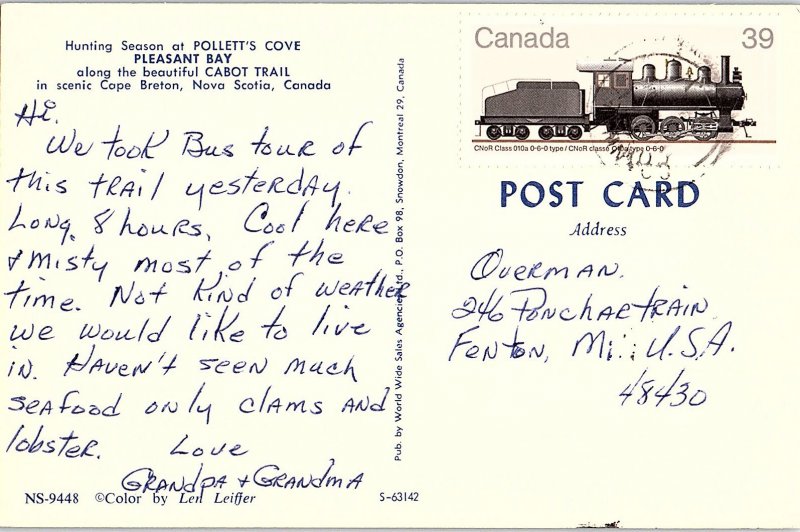 Hunting Season at POLLETT'S COVE
PLEASANT BAY
along the beautiful CABOT TRAIL
in scenic Cape Breton, Nova Scotia, Canada
Hi.
We took Bus tour of
this trail yesterday.
Long, 8 hours. Cool here
& misty most of the
time. Not kind of weather
we would like to live
in. Haven't seen much
seafood only clams and
lobster. Love
Grandpa & Grandma
NS-9448 ©Color by Len Leiffer
S-63142
Pub. by World Wide Sales Agencies Ltd., P.O. Box 98, Snowdon, Montreal 29, Canada
Canada 39
CNoR Class 010a 0-6-0 type / CNoR classe 010a type 0-6-0
POST CARD
Address
Overman.
246 Ponchartrain
Fenton, Mi. U.S.A.
48430